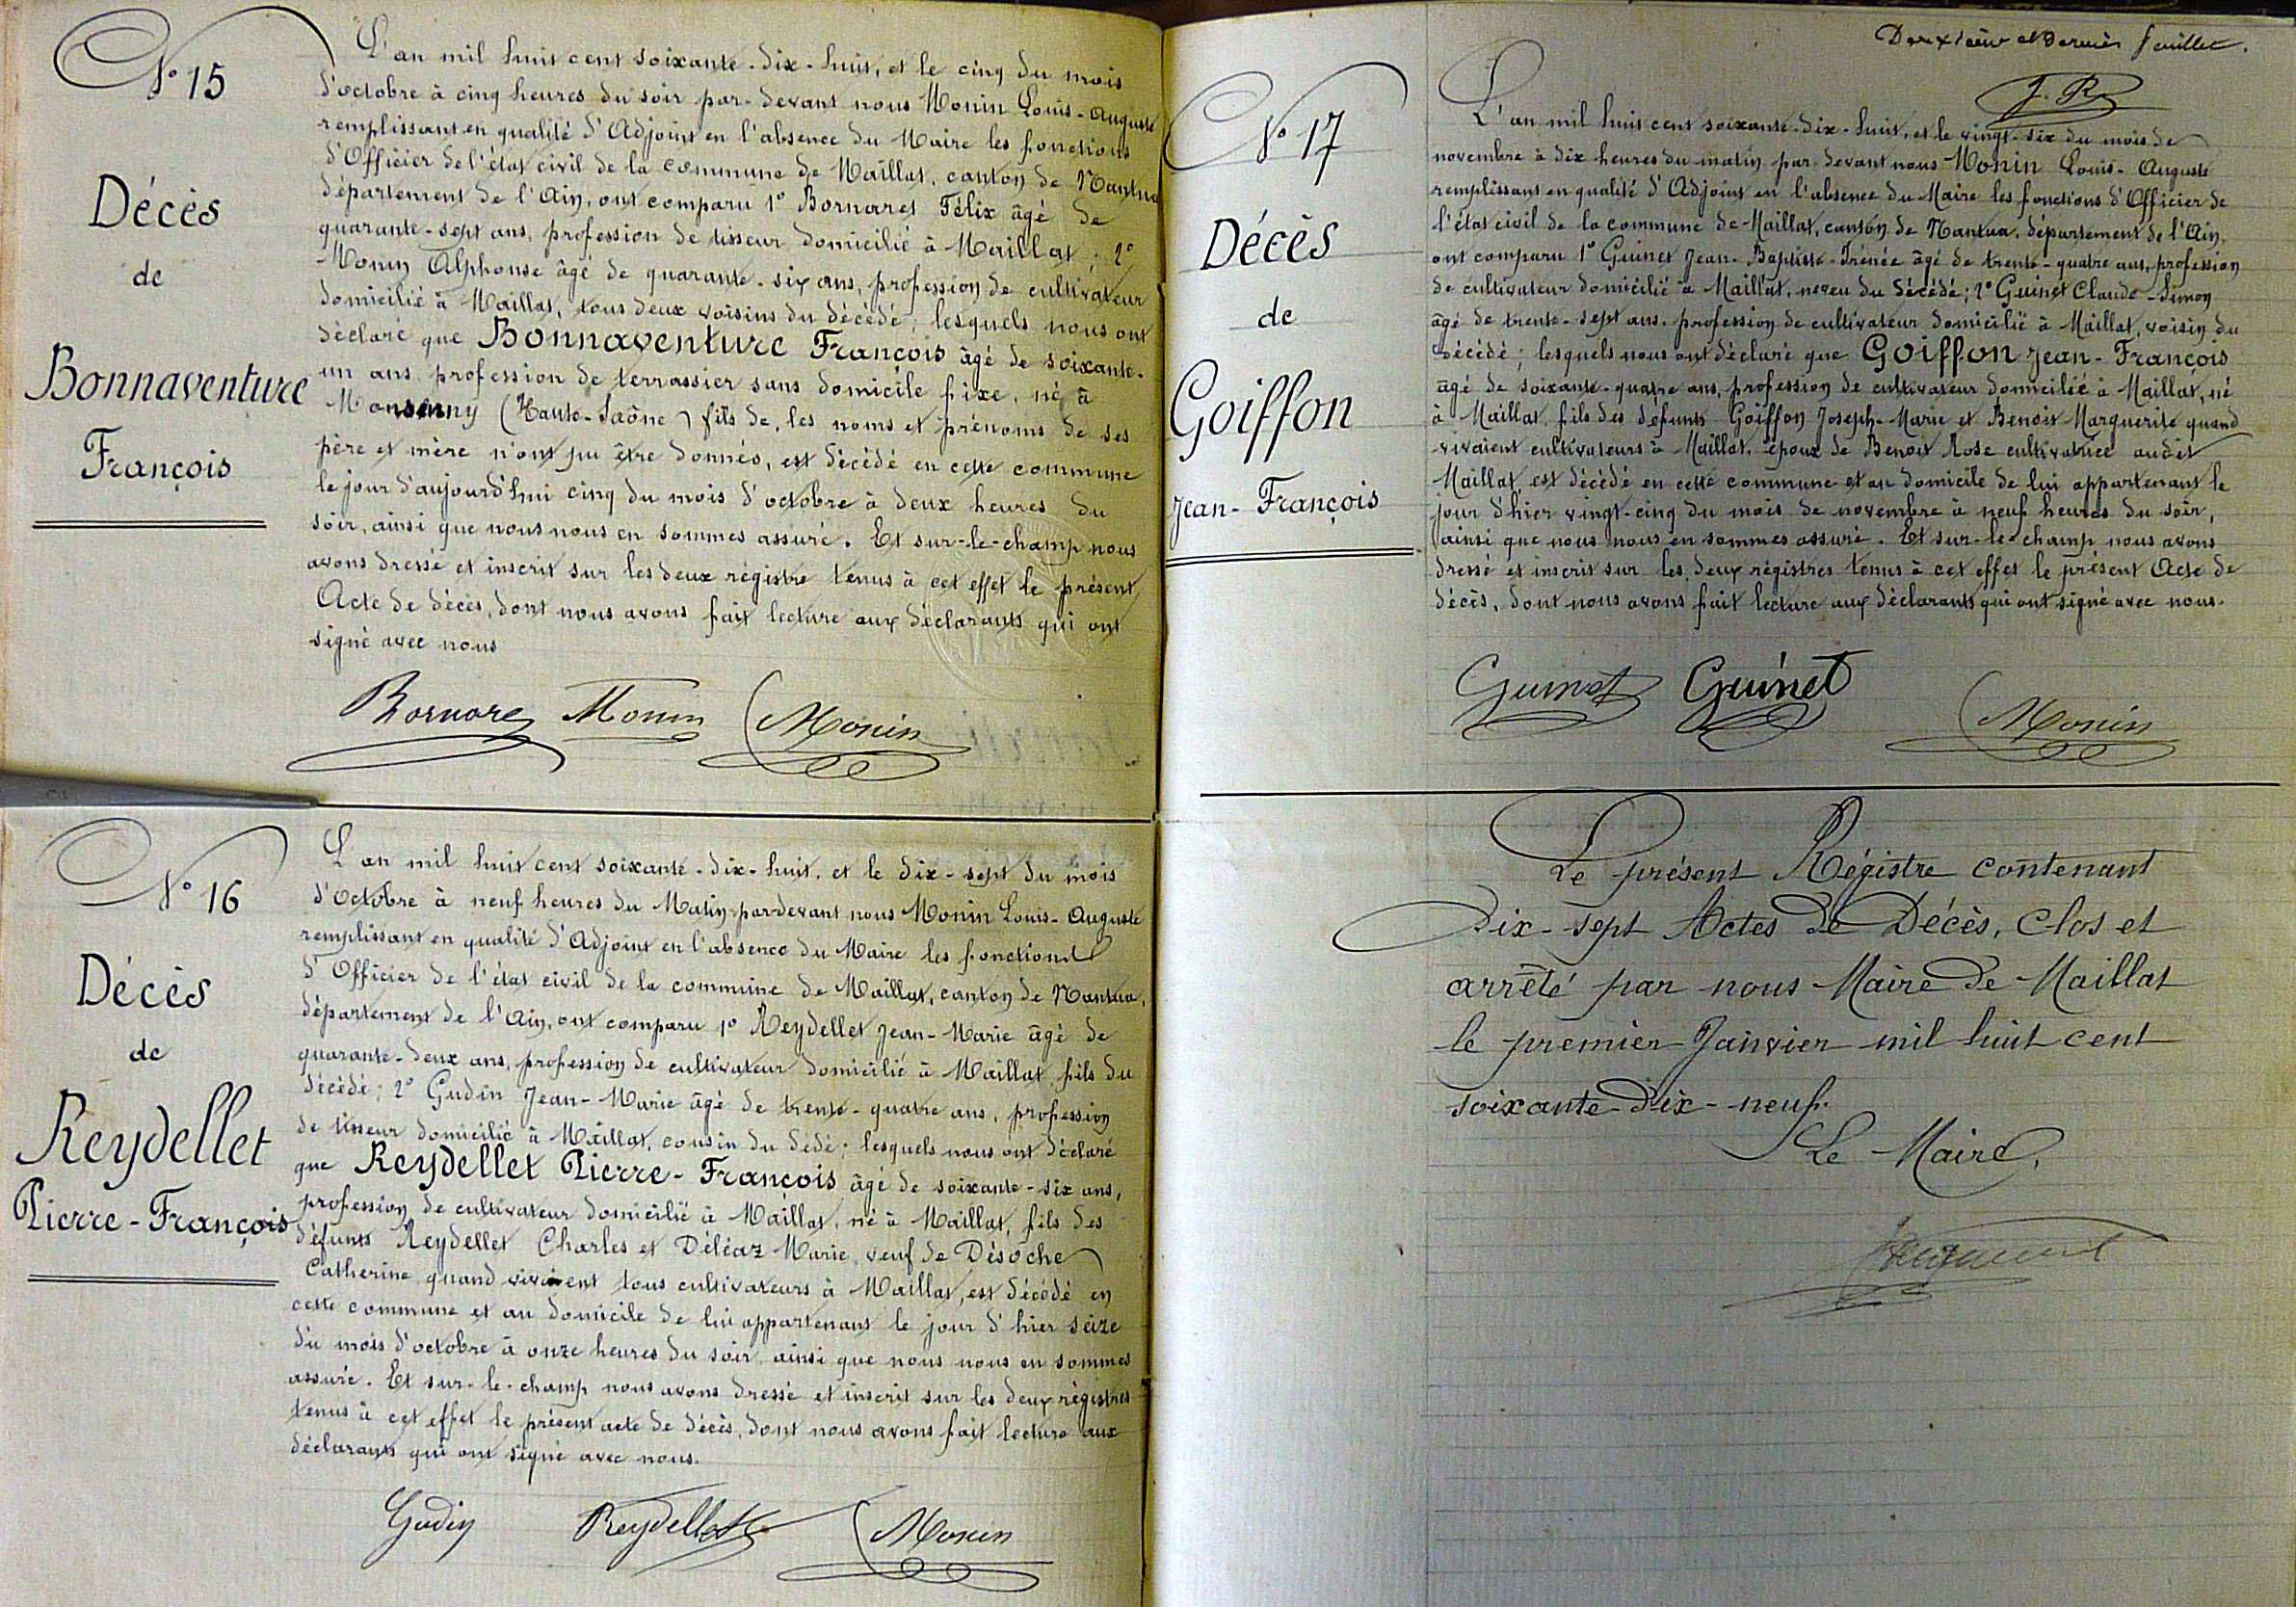 N° 15
Décès
de
Bonnaventure
François
L'an mil huit cent soixante-dix-huit, et le cinq du mois
d'octobre à cinq heures du soir par-devant nous Monin Louis-Auguste
remplissant en qualité d'Adjoint en l'absence du Maire les fonctions
d'Officier de l'état civil de la commune de Maillat, canton de Nantua
département de l'Ain, ont comparu 1° Bornarel Félix âgé de
quarante-sept ans, profession de tisseur domicilié à Maillat ; 2°
Monin Alphonse âgé de quarante-six ans, profession de cultivateur
domicilié à Maillat, tous deux voisins du décédé ; lesquels nous ont
déclaré que Bonnaventure François âgé de soixante-
un ans, profession de terrassier sans domicile fixe, né à
(Haute-Saône) fils de, les noms et prénoms de ses
père et mère n'ont pu être donnés, est décédé en cette commune
le jour d'aujourd'hui cinq du mois d'octobre à deux heures du
soir, ainsi que nous nous en sommes assuré. Et sur-le-champ nous
avons dressé et inscrit sur les deux régistre tenus à cet effet le présent
Acte de décès, dont nous avons fait lecture aux déclarants qui ont
signé avec nous
Monin Monin
N° 16
Décès
de
Reydellet
Pierre-François
L'an mil huit cent soixante-dix-huit, et le dix-sept du mois
d'octobre à neuf heures du Matin pardevant nous Monin Louis-Auguste
remplissant en qualité d'Adjoint en l'absence du Maire les fonctions
d'Officier de l'état civil de la commune de Maillat, canton de Nantua,
département de l'Ain, ont comparu 1° Reydellet Jean-Marie âgé de
quarante-deux ans, profession de cultivateur domicilié à Maillat, fils du
décédé ; 2° Gudin Jean-Marie âgé de trente-quatre ans, profession
de tisseur domicilié à Maillat, cousin du dédé ; lesquels nous ont déclaré
que Reydellet Pierre-François âgé de soixante-six ans,
profession de cultivateur domicilié à Maillat, né à Maillat, fils des
défunts Reydellet Charles et Déléaz Marie, veuf de Désoche
Catherine quand vivaient tous cultivateurs à Maillat, est décédé en
cette commune et au domicile de lui appartenant le jour d'hier seize
du mois d'octobre à onze heures du soir, ainsi que nous nous en sommes
assuré. Et sur-le-champ nous avons dressé et inscrit sur les deux régistres
tenus à cet effet le présent acte de décès, dont nous avons fait lecture aux
déclarants qui ont signé avec nous.
Gudin Reydellet Monin
Deuxième et dernier feuillet.
N° 17
Décès
de
Goiffon
Jean-François
L'an mil huit cent soixante-dix-huit, et le vingt-six du mois de
novembre à dix heures du matin par-devant nous Monin Louis-Auguste
remplissant en qualité d'Adjoint en l'absence du Maire les fonctions d'Officier de
l'état civil de la commune de Maillat, canton de Nantua, département de l'Ain,
ont comparu 1° Guinet Jean-Baptiste-Irénée âgé de trente-quatre ans, profession
de cultivateur domicilié à Maillat, neveu du décédé ; 2° Guinet Claude-Simon
âgé de trente-sept ans, profession de cultivateur domicilié à Maillat, voisin du
décédé ; lesquels nous ont déclaré que Goiffon Jean-François
âgé de soixante-quatre ans, profession de cultivateur domicilié à Maillat, né
à Maillat, fils des défunts Goiffon Joseph-Marie et Benoit Marguerite quand
vivaient cultivateurs à Maillat, époux de Benoit Rose cultivatrice audit
Maillat, est décédé en cette commune et au domicile de lui appartenant le
jour d'hier vingt-cinq du mois de novembre à neuf heures du soir,
ainsi que nous nous en sommes assuré. Et sur-le-champ nous avons
dressé et inscrit sur les deux régistres tenus à cet effet le présent Acte de
décès, dont nous avons fait lecture aux déclarants qui ont signé avec nous.
Guinet Guinet Monin
Le présent Régistre contenant
Dix-sept Actes de Décès, clos et
arrêté par nous Maire de Maillat
le premier Janvier mil huit cent
soixante-dix-neuf.
Le Maire,